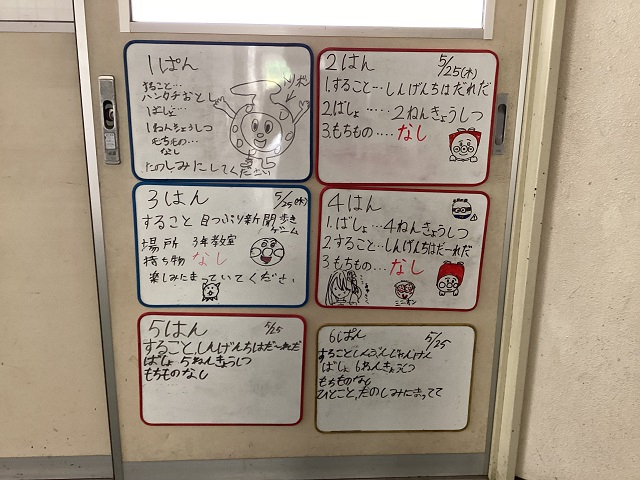 1ぱん
すること…
ハンカチおとし
ばしょ…
1ねんきょうしつ
もちもの…
なし
たのしみにしてください
リボン
2はん 5/25(木)
1.すること…しんげんちはだれだ
2.ばしょ……2ねんきょうしつ
3.もちもの….なし
3はん 5/25(木)
すること 目つぶり新聞歩き
ゲーム
場所 3年教室
持ち物 なし
楽しみまっていてください
4はん
1.ばしょ…4ねんきょうしつ
2.すること…しんげんちはだーれだ
3.もちもの…なし
5はん 5/25
すること、しんげんちはだ〜れだ
ばしょ 5ねんきょうしつ
もちものなし
6ぱん 5/25
することしんぶんじゃんけん
ばしょ 6ねんきょうしつ
もちものなし
ひとこと、たのしみに待ってて